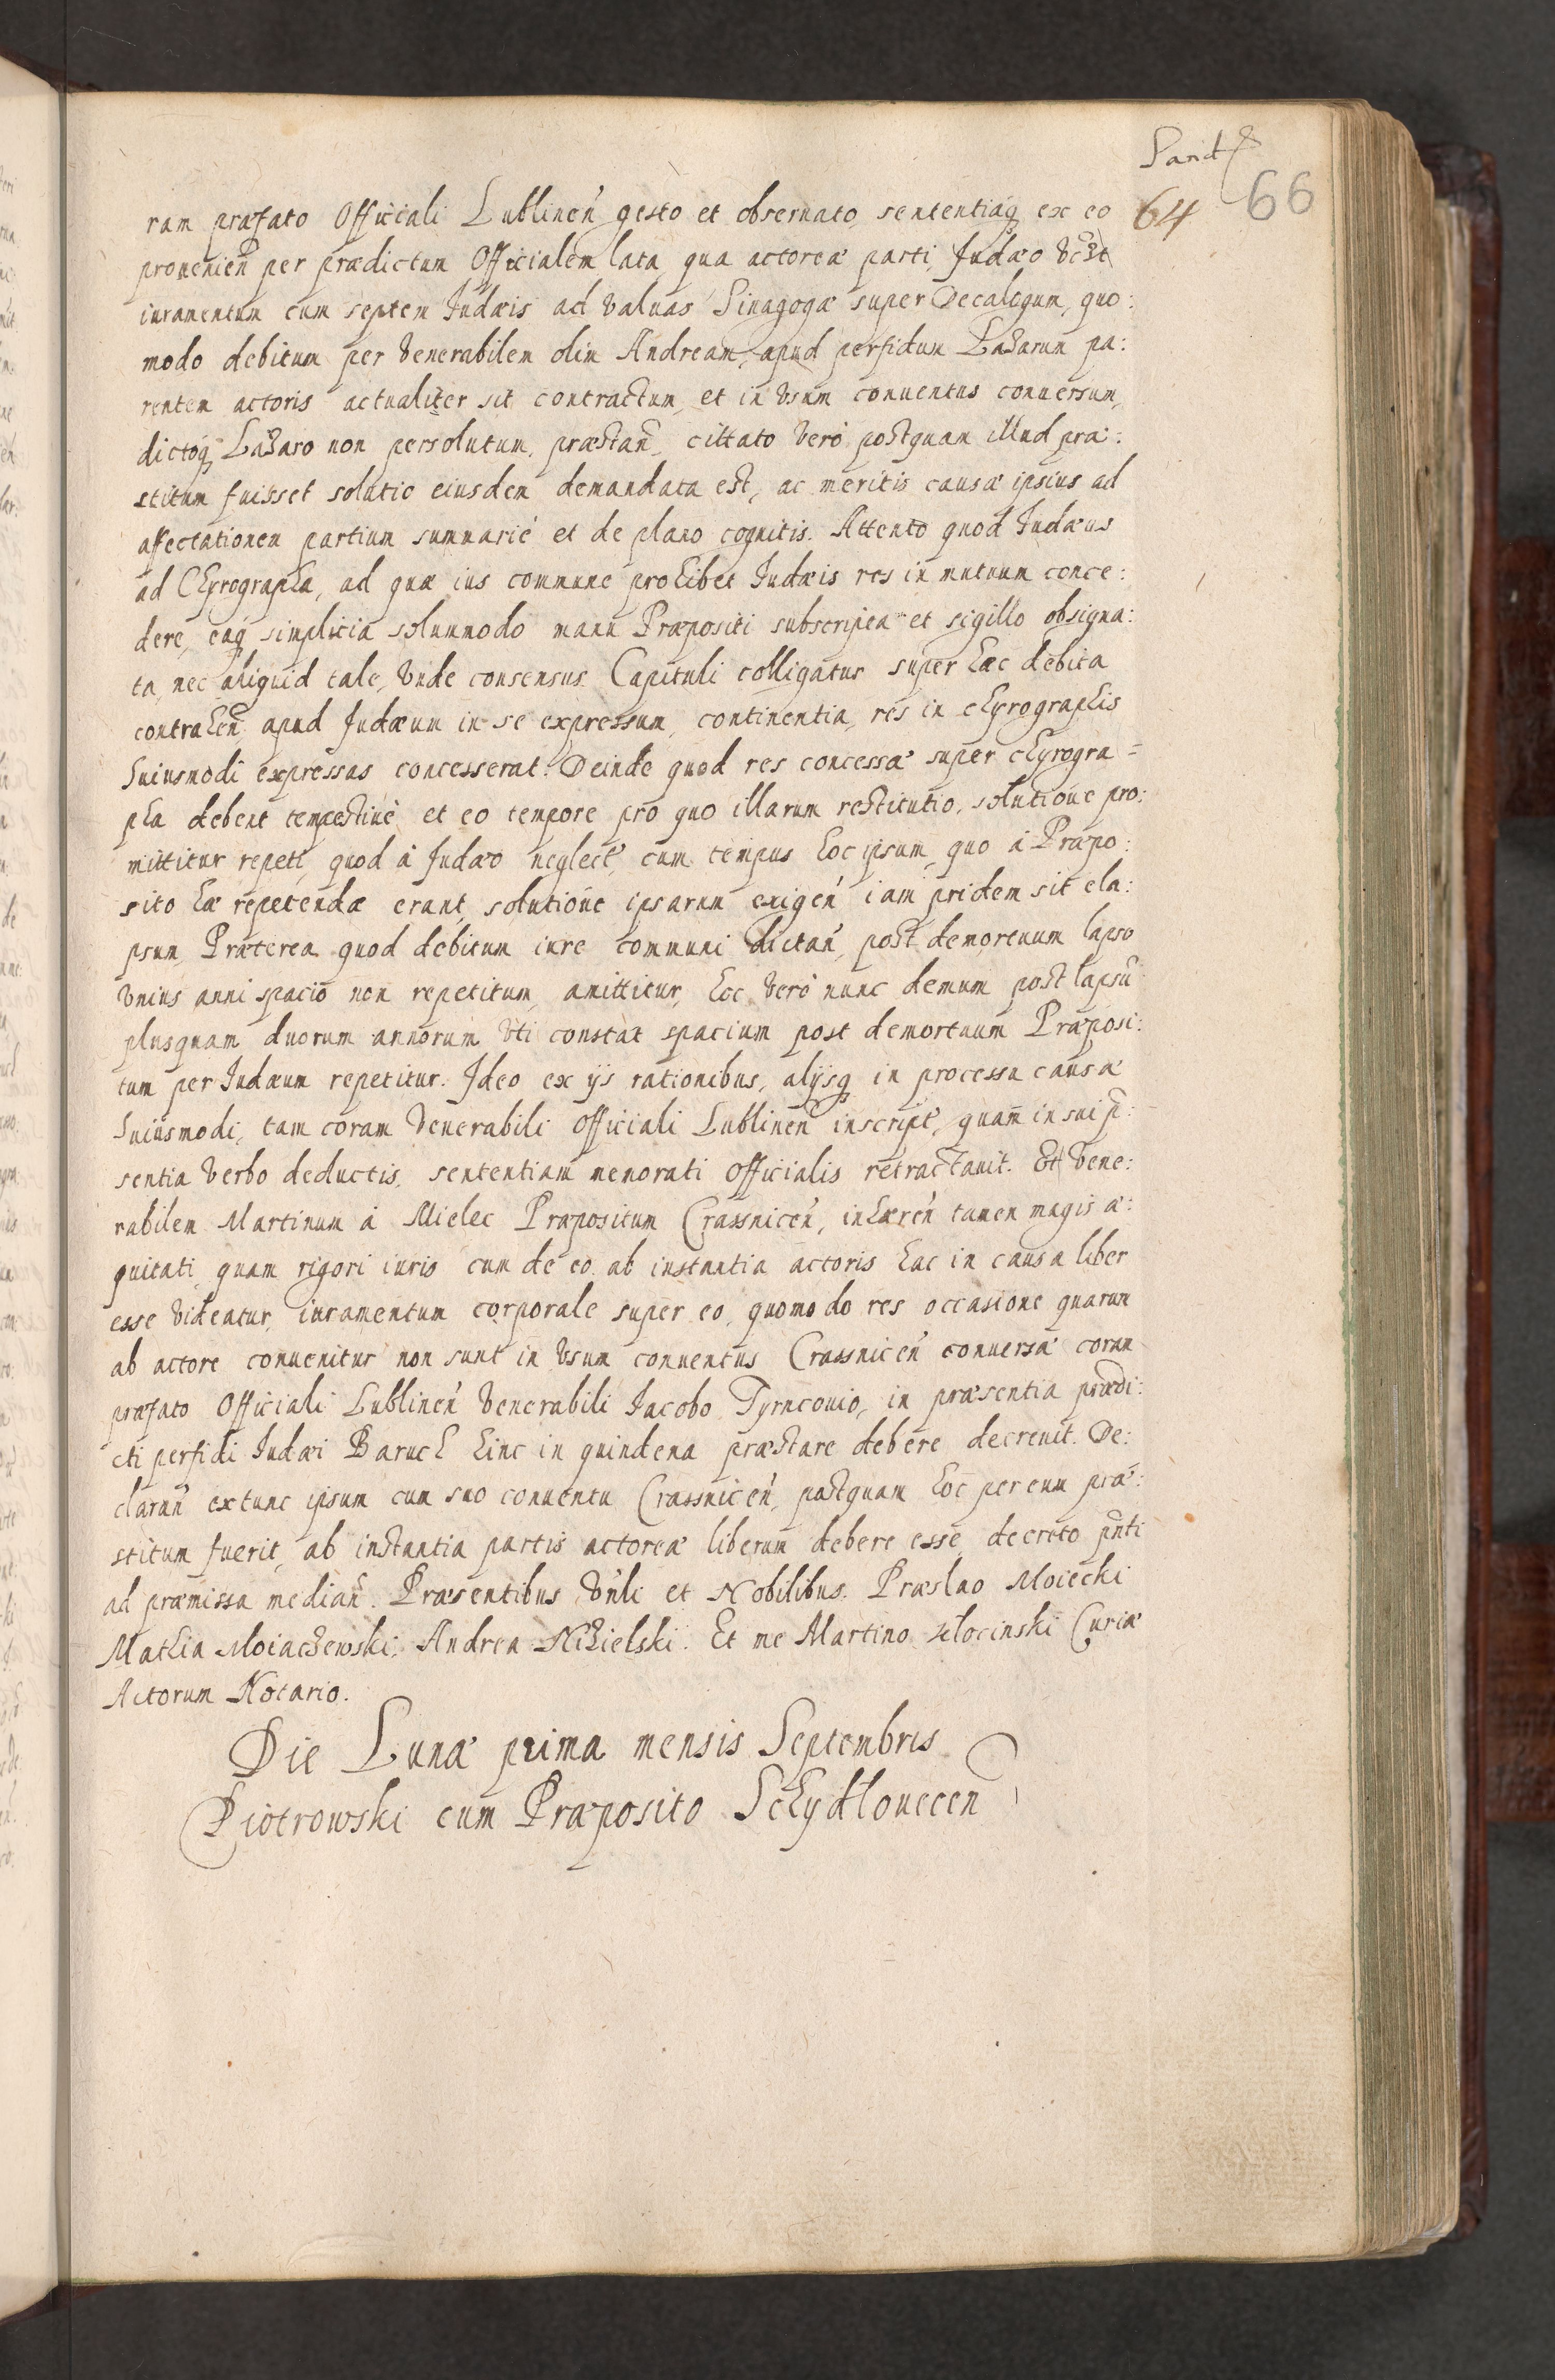 64 66
ram præfato Officiali Lublinen̄ gesto et obseruato, sententiaq́ ex eo
prouenien̄ per prædictum Officialem lata, qua actoreæ parti, Judæo
iuramentum cum septem Judæis ad valuas Sinagogæ super Decalogum, quo:
modo debitum per Venerabilem olim Andream, apud perfidum Lazarum pa:
rentem actoris actualiter sit contractum, et in vsum conuentus conuersum,
dictoq́ Lazaro non persolutum, præstan̄, cittato verò postquam illud præ:
stitum fuisset solutio eiusdem demandata est, ac meritis causæ ipsius ad
affectationem partium summariè et de plano cognitis. Attento quod Judæus
ad Chyrographa, ad quæ ius commune prohibet Judæis res in mutuum conce:
dere, eaq́ simplicia solummodo manu Præpositi subscripta et sigillo obsigna:
ta, nec aliquid tale, vnde consensus Capituli colligatur super hæc debita
contrahen̄ apud Judæum in se expressum, continentia, res in chyrographis
huiusmodi expressas concesserat. Deinde quod res concessæ super chyrogra=
pha debent tempestiuè, et eo tempore pro quo illarum restitutio, solutione pro:
mittitur repeti, quod à Judæo neglect̄, cum tempus hoc ipsum, quo à Præpo:
sito hæ repetendæ erant, solutione ipsarum exigen̄ iam pridem sit ela:
psum, Præterea quod debitum iure communi dictan̄, post demortuum lapso
vnius anni spacio non repetitum, amittitur, hoc verò nunc demum post lapsū
plusquam duorum annorum vti constat spacium post demortuum Præposi:
tum per Judæum repetitur. Ideo ex ijs rationibus, alijsq́ in processu causæ
huiusmodi, tam coram Venerabili Officiali Lublinen̄ inscript̄, quam in sui p̄:
sentia verbo deductis, sententiam memorati Officialis retractauit. Et Vene:
rabilem Martinum à Mielec Præpositum Crassnicen̄, inhæren̄ tamen magis æ:
quitati, quam rigori iuris cum de eo ab instantia actoris hac in causa liber
esse videatur, iuramentum corporale super eo, quomodo res occasione quarum
ab actore conuenitur non sunt in vsum conuentus Crassnicen̄ conuersæ coram
præfato Officiali Lublinen̄ Venerabili Jacobo Tyrncouio, in præsentia prædi:
cti perfidi Judæi Baruch hinc in quindena præstare debere decreuit. De:
claran̄ extunc ipsum cum suo conuentu Crassnicen̄, postquam hoc per eum præ:
stitum fuerit, ab instantia partis actoreæ liberum debere esse, decreto pn̄ti
ad præmissa median̄. Præsentibus Vn̄li et Nobilibus. Præslao Moiecki
Mathia Moiaczewski, Andrea Niżielski. Et me Martino Kłocinski Curiæ
Actorum Notario.
Die Lunæ prima mensis Septembris
Piotrowski cum Præposito Schydłouecen̄